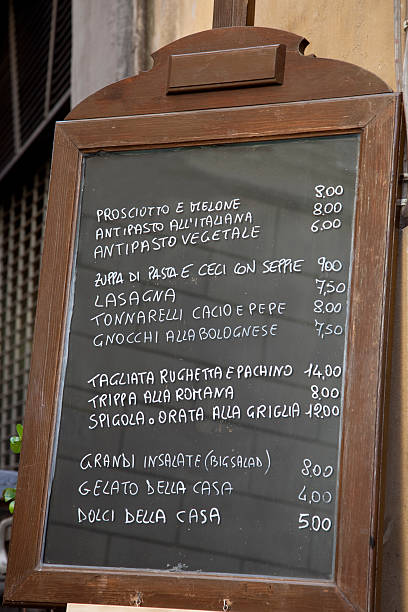 PROSCIUTTO E MELONE 8,00
ANTIPASTO ALL'ITALIANA 8,00
ANTIPASTO VEGETALE 6,00
ZUPPA DI PASTA E CECI CON SEPPIE 900
LASAGNA 7,50
TONNARELLI CACIO E PEPE 8,00
GNOCCHI ALLA BOLOGNESE 7,50
TAGLIATA RUGHETTA E PACHINO 14,00
TRIPPA ALLA ROMANA 8,00
SPIGOLA O ORATA ALLA GRIGLIA 12,00
GRANDI INSALATE (BIG SALAD) 8,00
GELATO DELLA CASA 4,00
DOLCI DELLA CASA 5,00